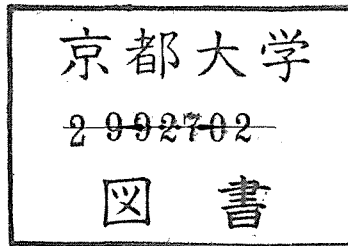 京都大学
2992702
図書